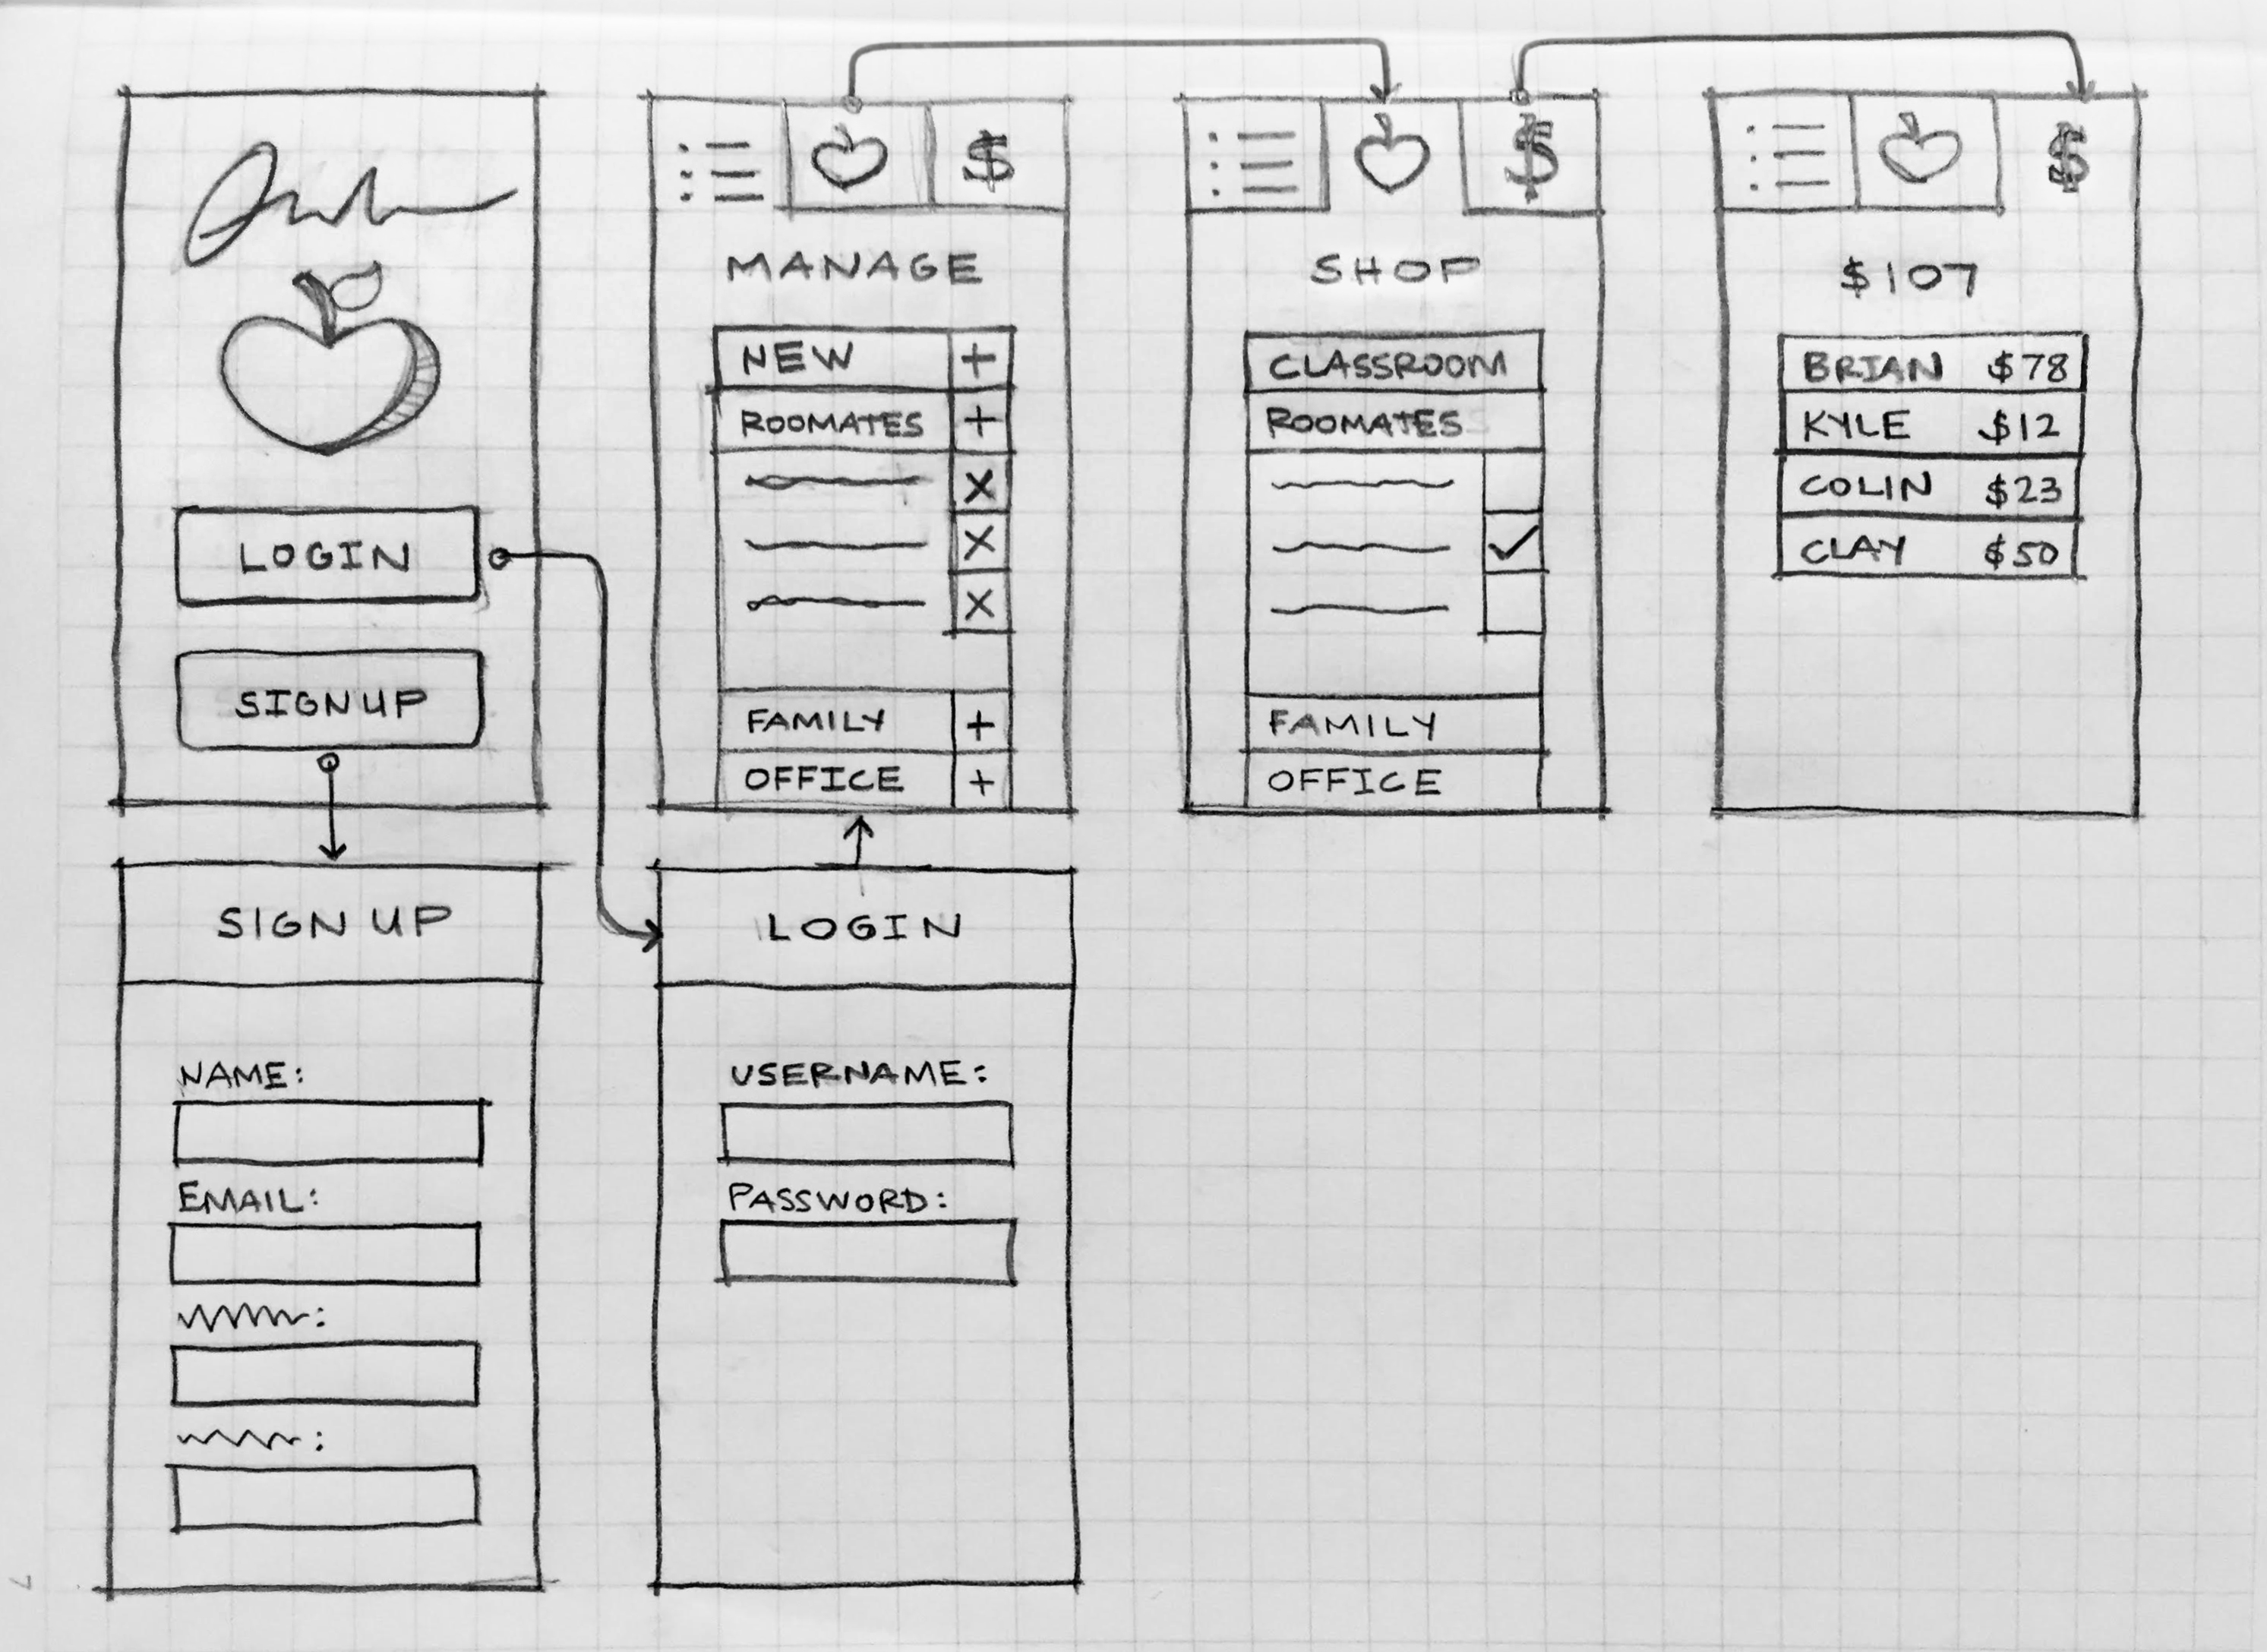 LOGIN
SIGN UP
MANAGE
NEW +
ROOMATES +
X
X
X
FAMILY +
OFFICE +
SHOP
CLASSROOM
ROOMATES
FAMILY
OFFICE
$
$
$
$107
BRIAN $78
KYLE $12
COLIN $23
CLAY $50
SIGN UP
NAME:
EMAIL:
LOGIN
USERNAME:
PASSWORD: